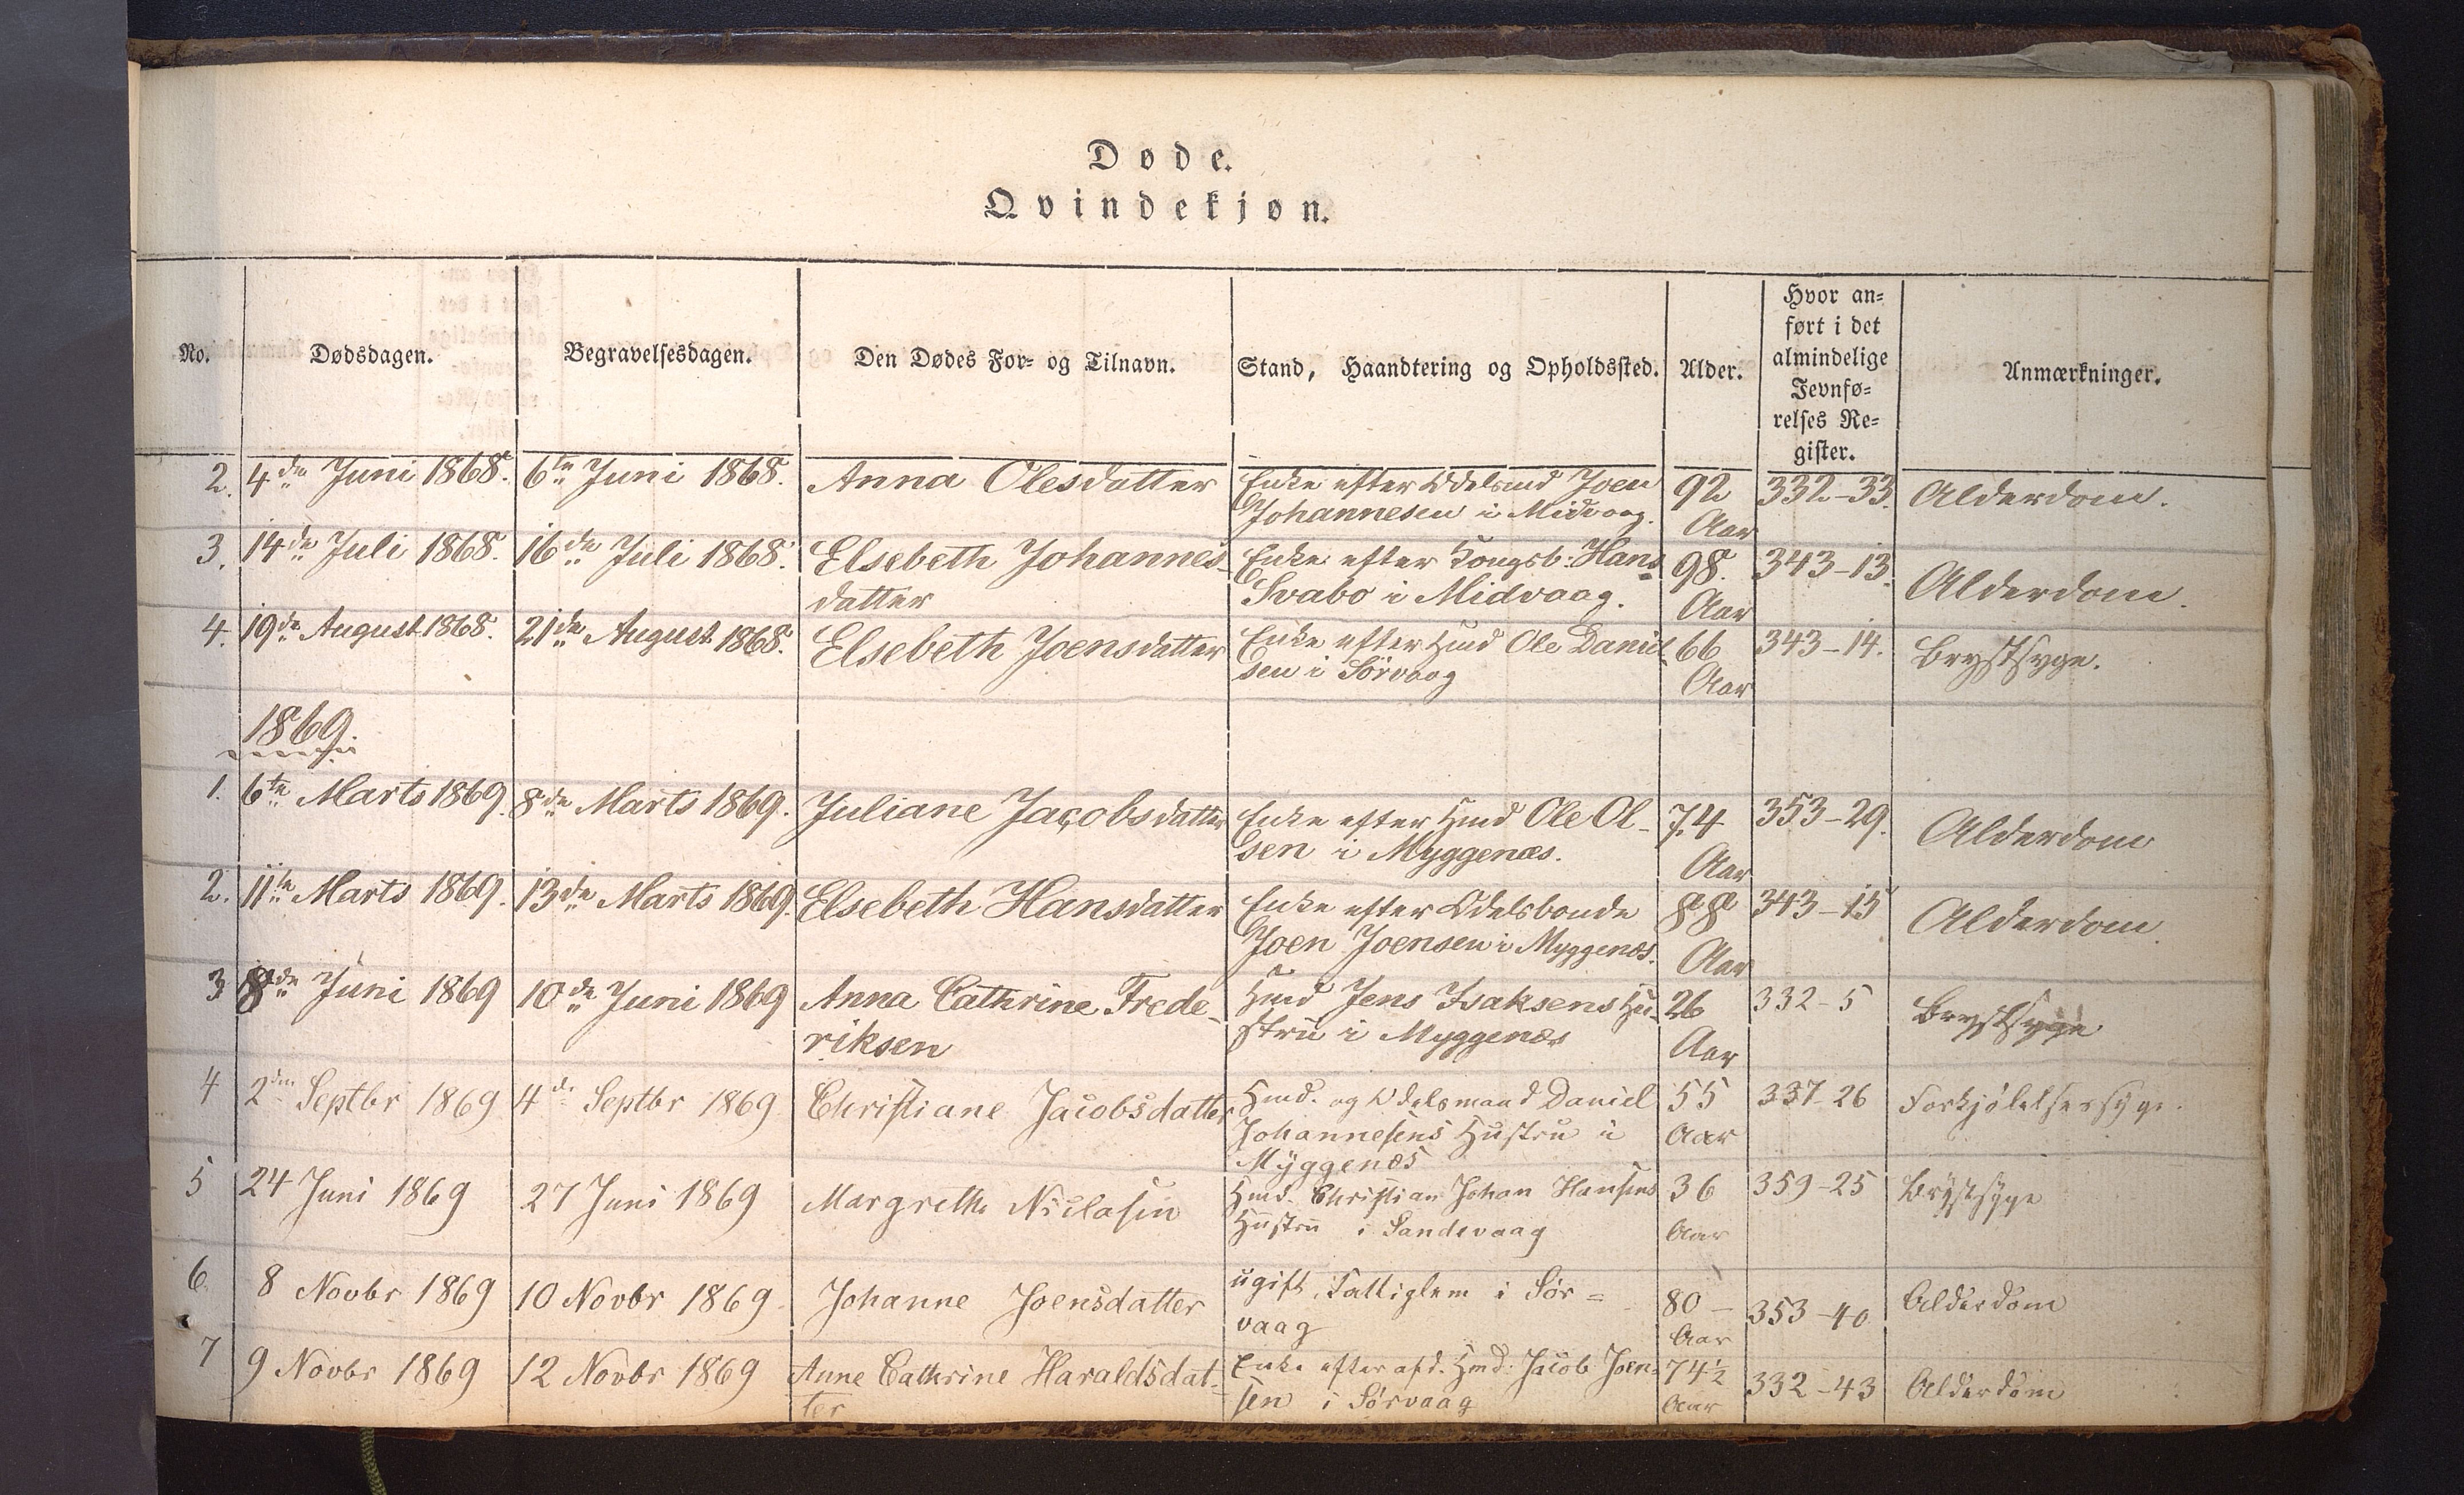 Døde.
Qvindekjøn.
No.
Dødsdagen.
Begravelsesdagen.
Den Dødes For- og Tilnavn.
Stand, Haandtering og Opholdssted.
Alder.
Hvor an-
ført i det
almindelige
Jevnfø-
relses Re-
gister.
Anmærkninger.
2. 4den Juni 1868. 6te Juni 1868. Anna Olesdatter Enke efter Odelsmd Joen 92 332-33. Alderdom.
Johannesen i Midvaag. Aar
3. 14de Juli 1868. 16de Juli 1868. Elsebeth Johannes- Enke efter Kongsb: Hans 98. 343-13. Alderdom.
datter Svabo i Midvaag. Aar
4. 19de August 1868. 21de August 1868. Elsebeth Joensdatter Enke efter Hmd Ole Daniel- 66 343-14. Brystsyge.
sen i Sörvaag Aar
1869.
1. 6te Marts 1869. 8de Marts 1869. Juliane Jacobsdatter Enke efter Hmd Ole Ol- 74 353-29. Alderdom
sen i Myggenæs. Aar
2. 11te Marts 1869. 13de Marts 1869. Elsebeth Hansdatter Enke efter Odelsbonde 88 343-15 Alderdom.
Joen Joensen i Myggenæs. Aar
3 8de Juni 1869 10de Juni 1869 Anna Cathrine Frede- Hmd Jens Isaksens Hu- 26 332-5 Brystsyge
riksen stru i Myggenæs Aar
4 2den Septbr 1869 4de Septbr 1869 Christiane Jacobsdatter Hmd. og Odelsmand Daniel 55 337-26 Forkjölelsessyge.
Johannesens Hustru i Aar
Myggenæs
5 24 Juni 1869 27 Juni 1869 Margrethe Niclasen Hmd. Christian Johan Hansens 36 359-25 Brystsyge
Hustru i Sandevaag Aar
6 8 Novbr 1869 10 Novbr 1869 Johanne Joensdatter ugift Fattiglem i Sör= 80- 353-40 Alderdom
vaag Aar
7 9 Novbr 1869 12 Novbr 1869 Anne Cathrine Haraldsdat- Enke efter afd. Hmd: Jacob Joen- 74½ 332-43 Alderdom
ter sen i Sörvaag Aar